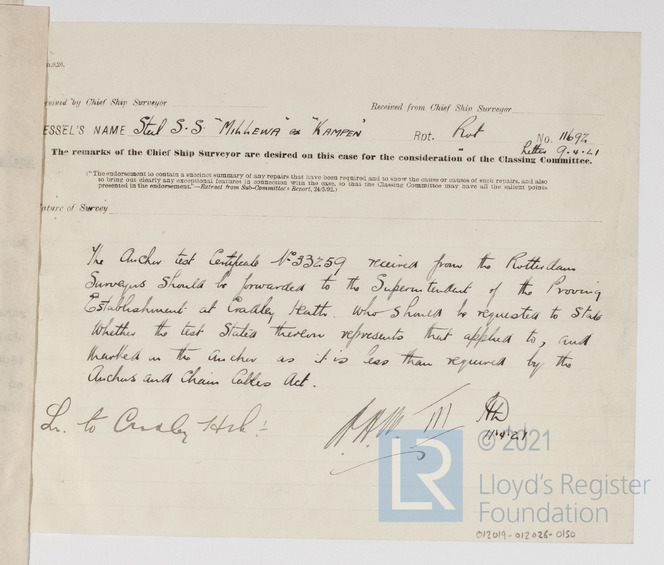 Received from Chief Ship Surveyor
by Chief Ship Surveyor
ESSEL'S NAME Steel S.S "MILLEWA" ex "KAMPEN" Rpt. Rot No. 11692
Letter 9.4.21
The remarks of the Chief Ship Surveyor are desired on this case for the consideration of the Classing Committee.
("The endorsement to contain a succinct summary of any repairs that have been required and to show the cause or causes of such repairs, and also
to bring out clearly any exceptional features in connection with the case, so that the Classing Committee may have all the salient points
presented in the endorsement."—Extract from Sub-Committee's Report, 24/3/92.)
ature of Survey
The Anchor test Certificate No 33259 received from the Rotterdam
Surveyors should be forwarded to the Superintendent of the Proving
Establishment at Cradley Heath. Who should be requested to State
Whether the test Stated thereon represents that applied to, and
marked on the Anchor as it is less than required by the
Anchors and Chain Cables Act.
Lr. to Cradley Hth.
11.4.21
LR
© 2021
Lloyd's Register
Foundation
012019-012026-0150